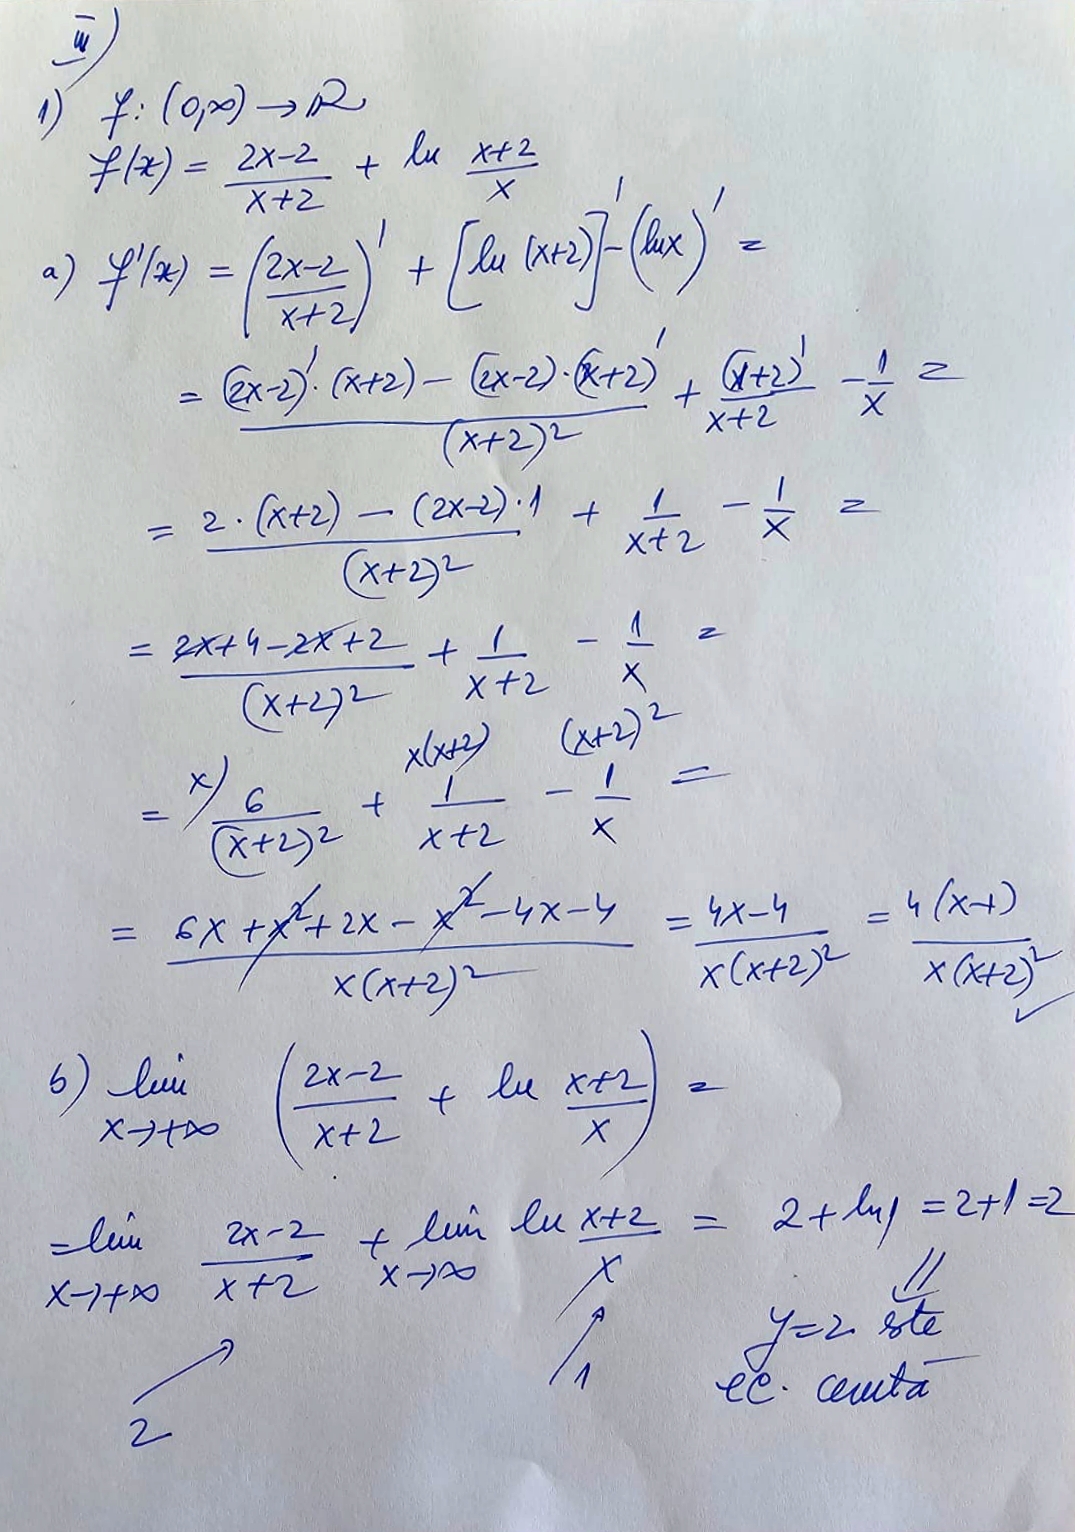 III)
1) f: (0,∞) → ℝ
f(x) = (2x-2)/(x+2) + ln (x+2)/x
a) f'(x) = ((2x-2)/(x+2))' + [ln (x+2)]' - (ln x)' =
= ((2x-2)'·(x+2) - (2x-2)·(x+2)')/(x+2)² + (x+2)'/(x+2) - 1/x =
= (2·(x+2) - (2x-2)·1)/(x+2)² + 1/(x+2) - 1/x =
= (2x+4-2x+2)/(x+2)² + 1/(x+2) - 1/x =
= x) 6/(x+2)² + x(x+2) 1/(x+2) - (x+2)² 1/x =
= (6x+x²+2x-x²-4x-4)/(x(x+2)²) = (4x-4)/(x(x+2)²) = 4(x-1)/(x(x+2)²) ✓
b) lim x→+∞ ((2x-2)/(x+2) + ln (x+2)/x) =
= lim x→+∞ (2x-2)/(x+2) + lim x→∞ ln (x+2)/x = 2+ln1 = 2+1=2
2
1
⇓
y=2 este
ec. cerută